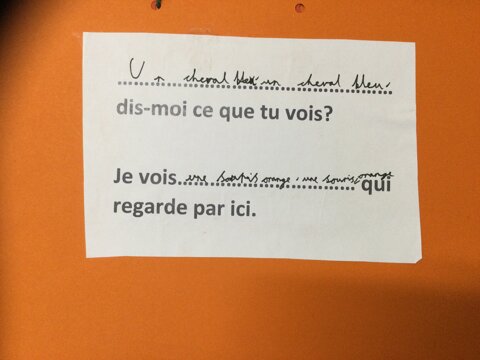 Un cheval bleu, un cheval bleu,
dis-moi ce que tu vois?
Je vois une souris orange, une souris orange qui
regarde par ici.